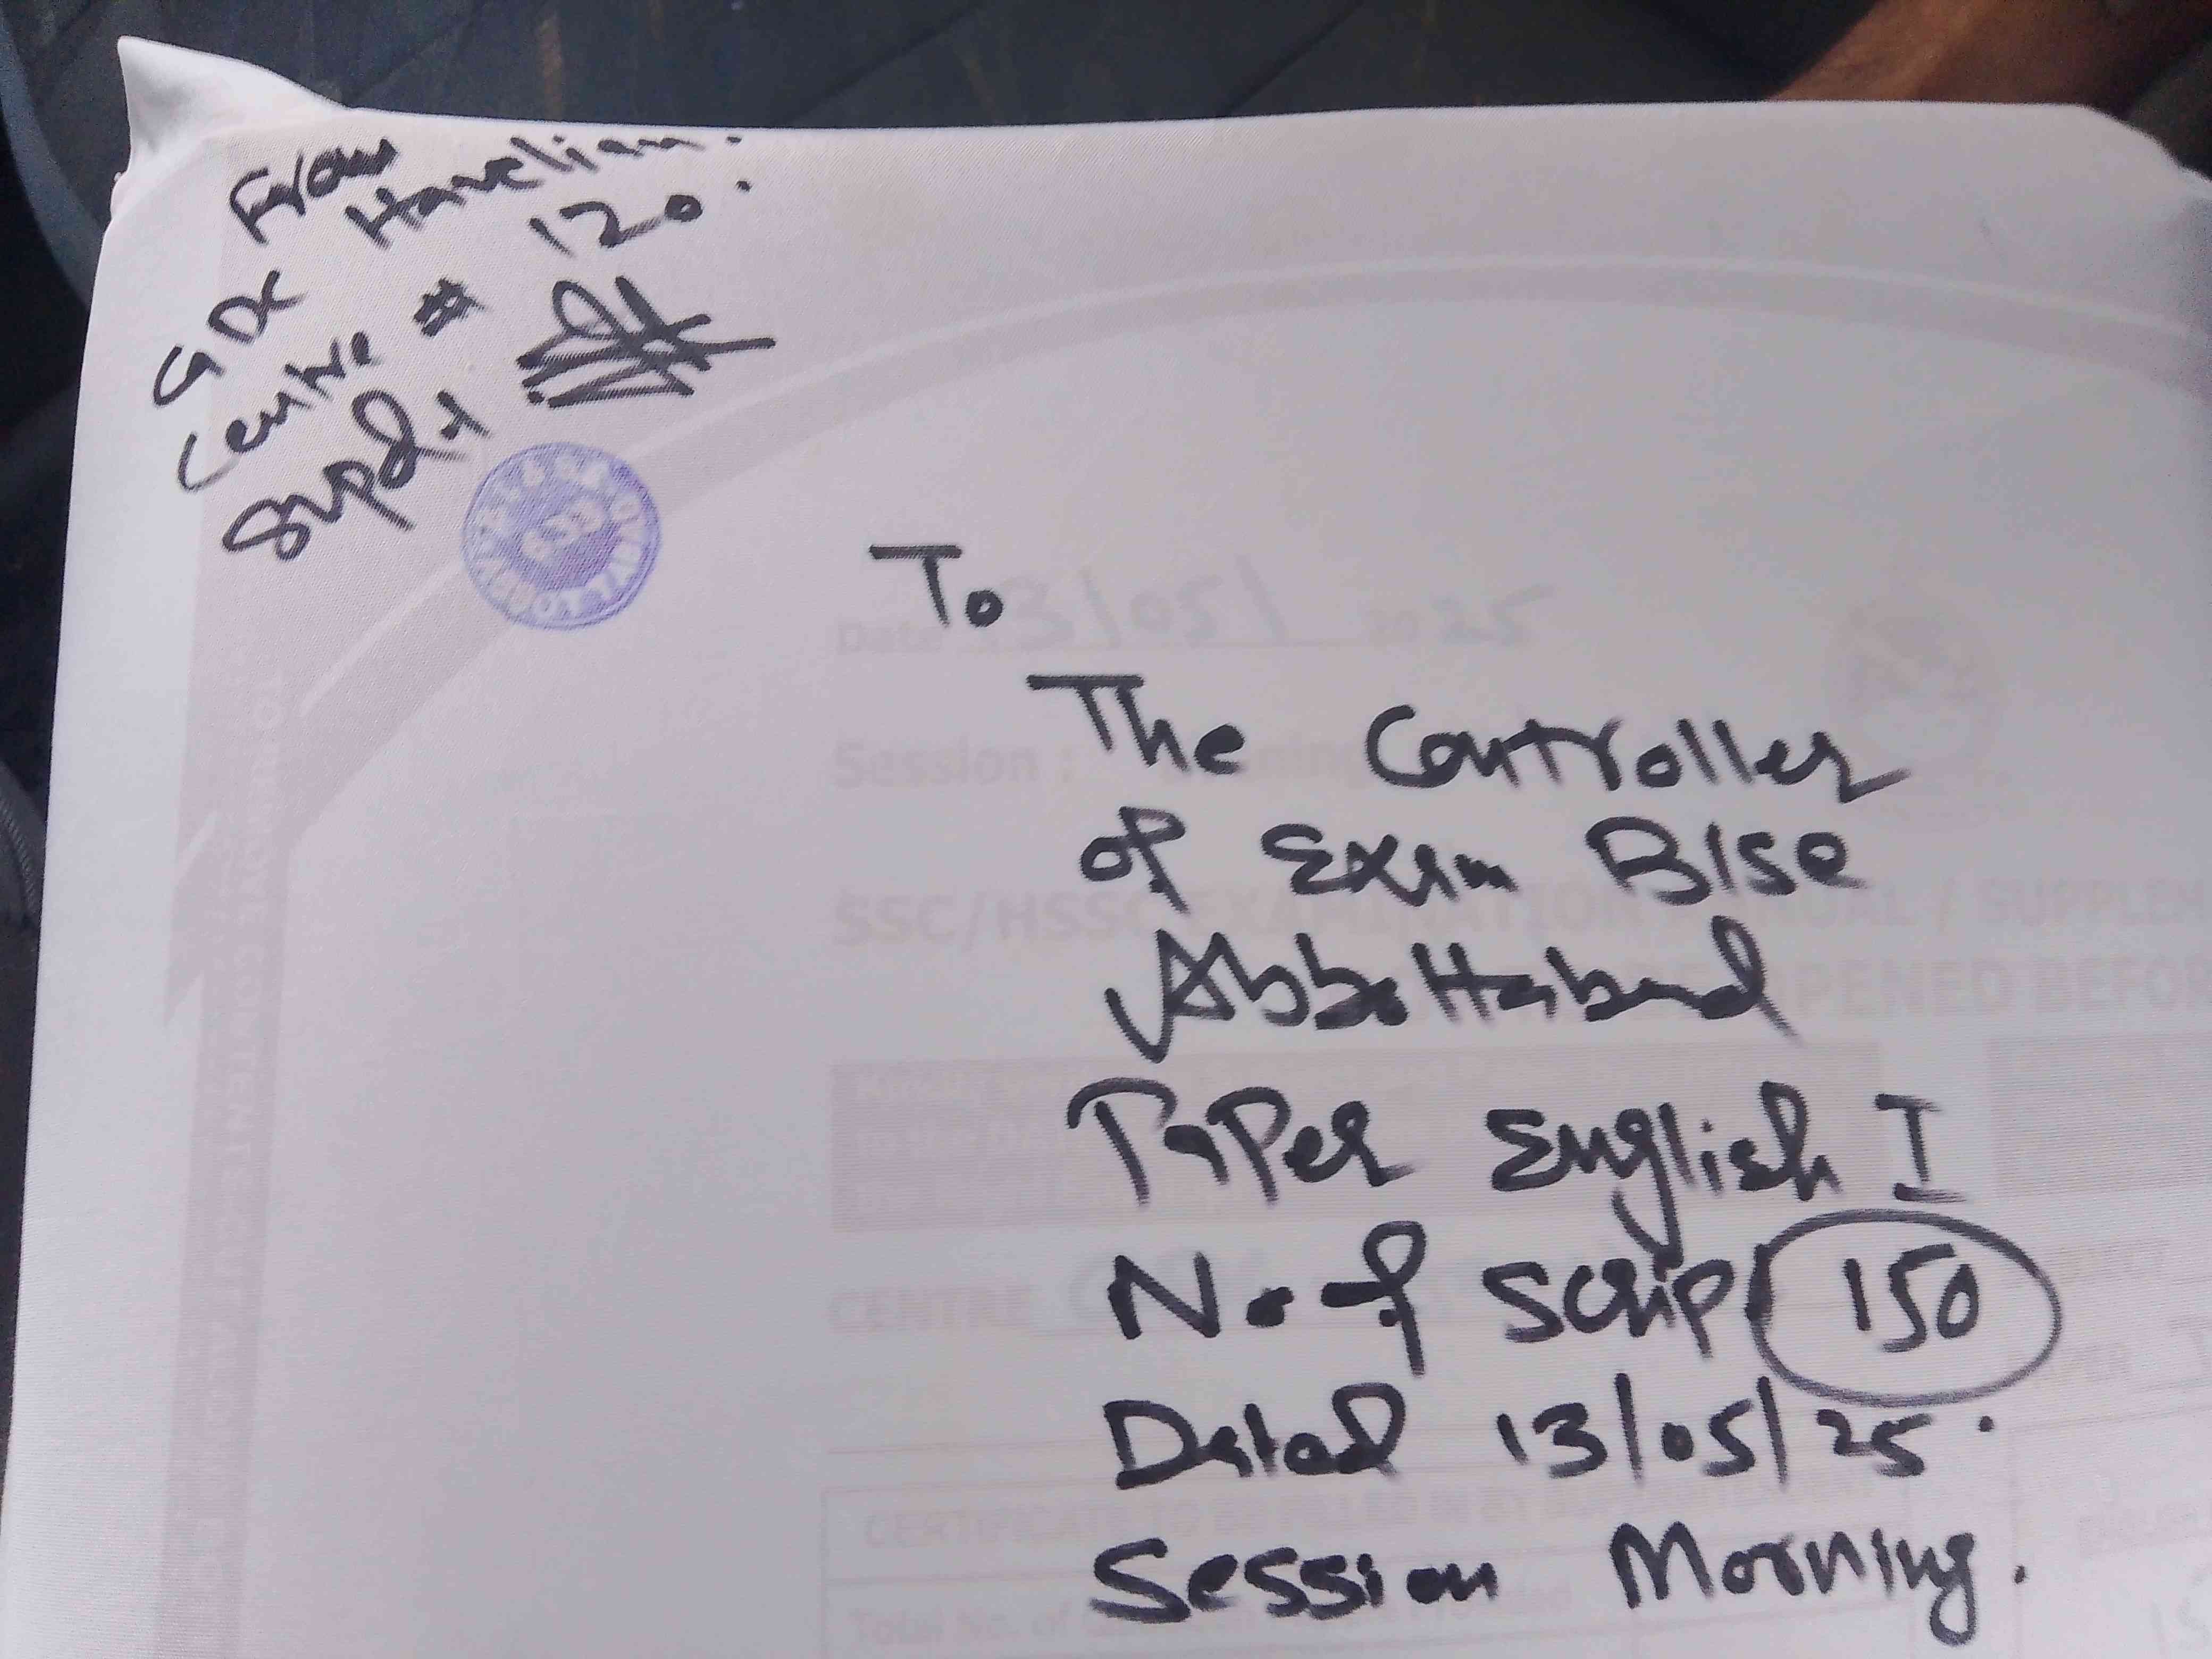 From
GDC Havelian.
Centre # 120.
Supdt
To
The Controller
of Exam BISe
Abbottabad
Paper English I
No of Scrip 150
Dated 13/05/25.
Session Morning.
Date 13/05/ 2025
Session :
SSC/HSSC EXAMINATION ANNUAL / SUPPLEM
OPENED BEFOR
CENTRE
CERTIFICATE TO BE FILLED IN BY
Total No. of